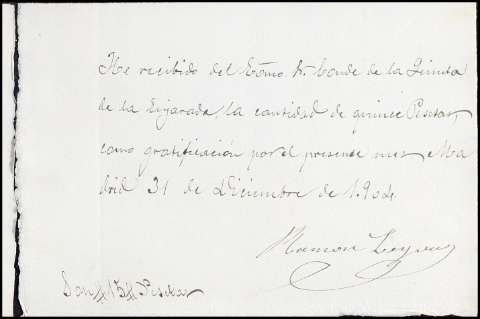 He recibido del Excmo Sr. Conde de la Quinta
de la Enjarada, la cantidad de quince Pesetas,
como gratificación por el presente mes. Ma
drid 31 de Diciembre de 1.904
Ramon
Son 15 Pesetas